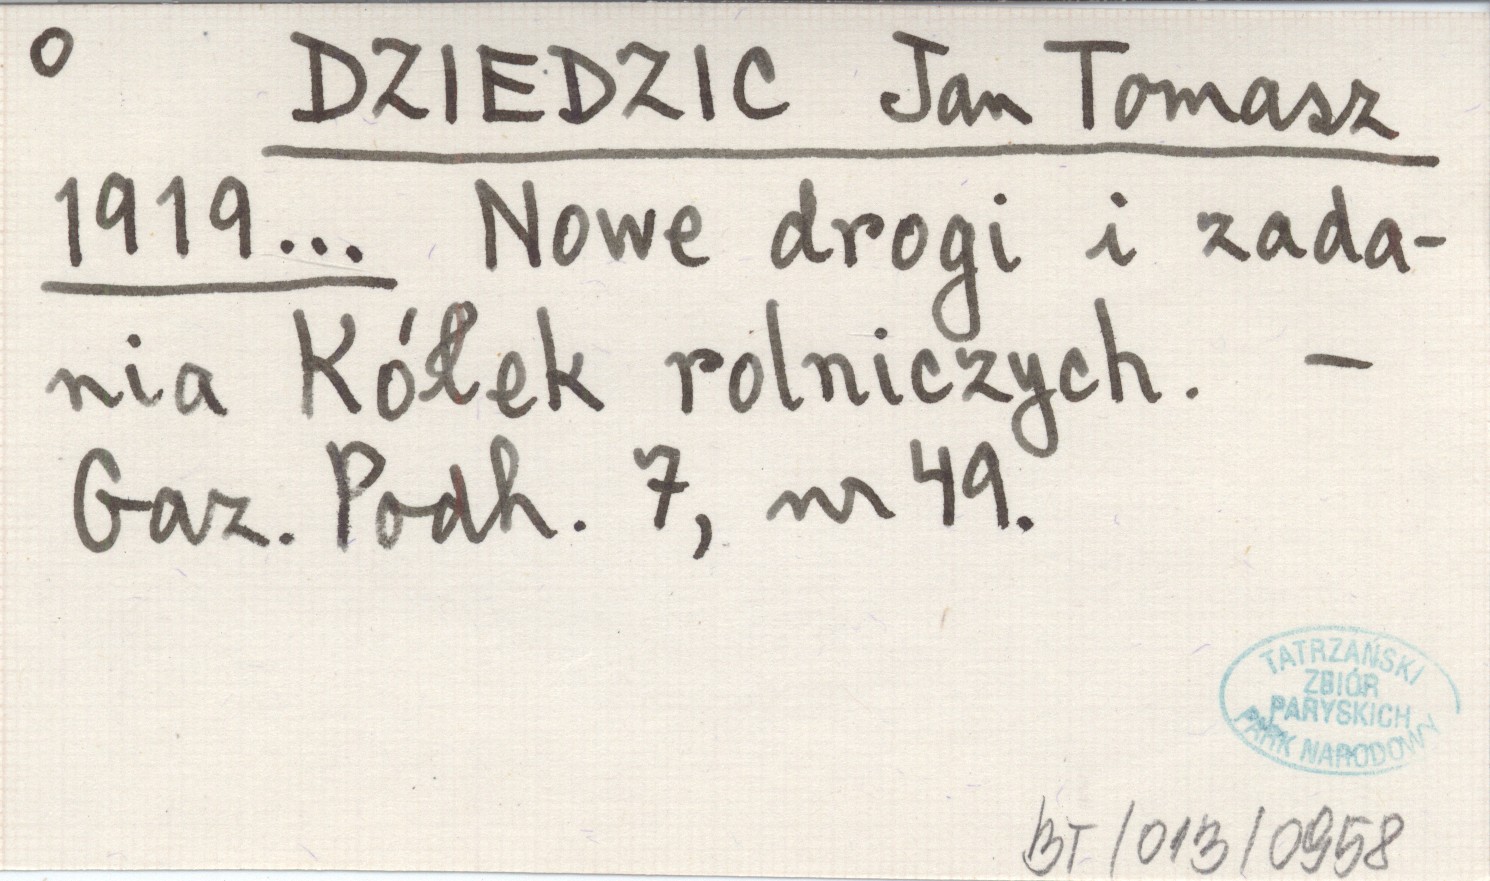 o DZIEDZIC Jan Tomasz
1919... Nowe drogi i zada-
nia Kółek rolniczych. –
Gaz. Podh. 7, nr 49.
TATRZAŃSKI
ZBIÓR
PARYSKICH
PARK NARODOWY
BT/013/0958